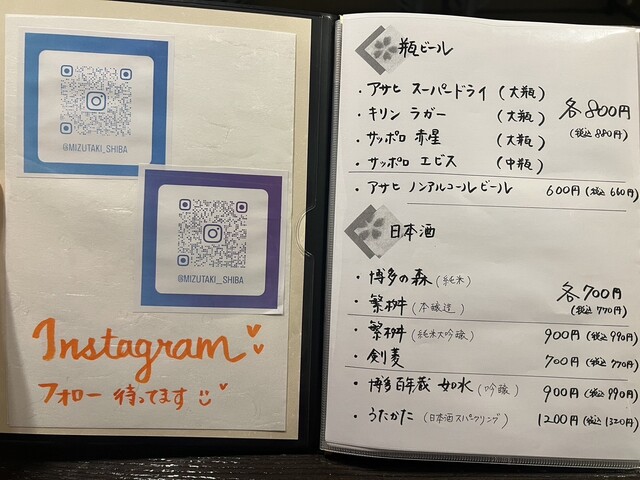 @MIZUTAKI_SHIBA
@MIZUTAKI_SHIBA
Instagram
フォロー 待ってます
瓶ビール
・アサヒ スーパードライ (大瓶)
・キリン ラガー (大瓶)
各800円
(税込880円)
・サッポロ 赤星 (大瓶)
・サッポロ エビス (中瓶)
・アサヒ ノンアルコールビール 600円(税込660円)
日本酒
・博多の森(純米)
各700円
(税込770円)
・繁桝(本醸造)
・繁桝(純米大吟醸) 900円(税込990円)
・剣菱 700円(税込770円)
・博多百年蔵 如水(吟醸) 900円(税込990円)
・うたかた(日本酒スパークリング) 1200円(税込1320円)